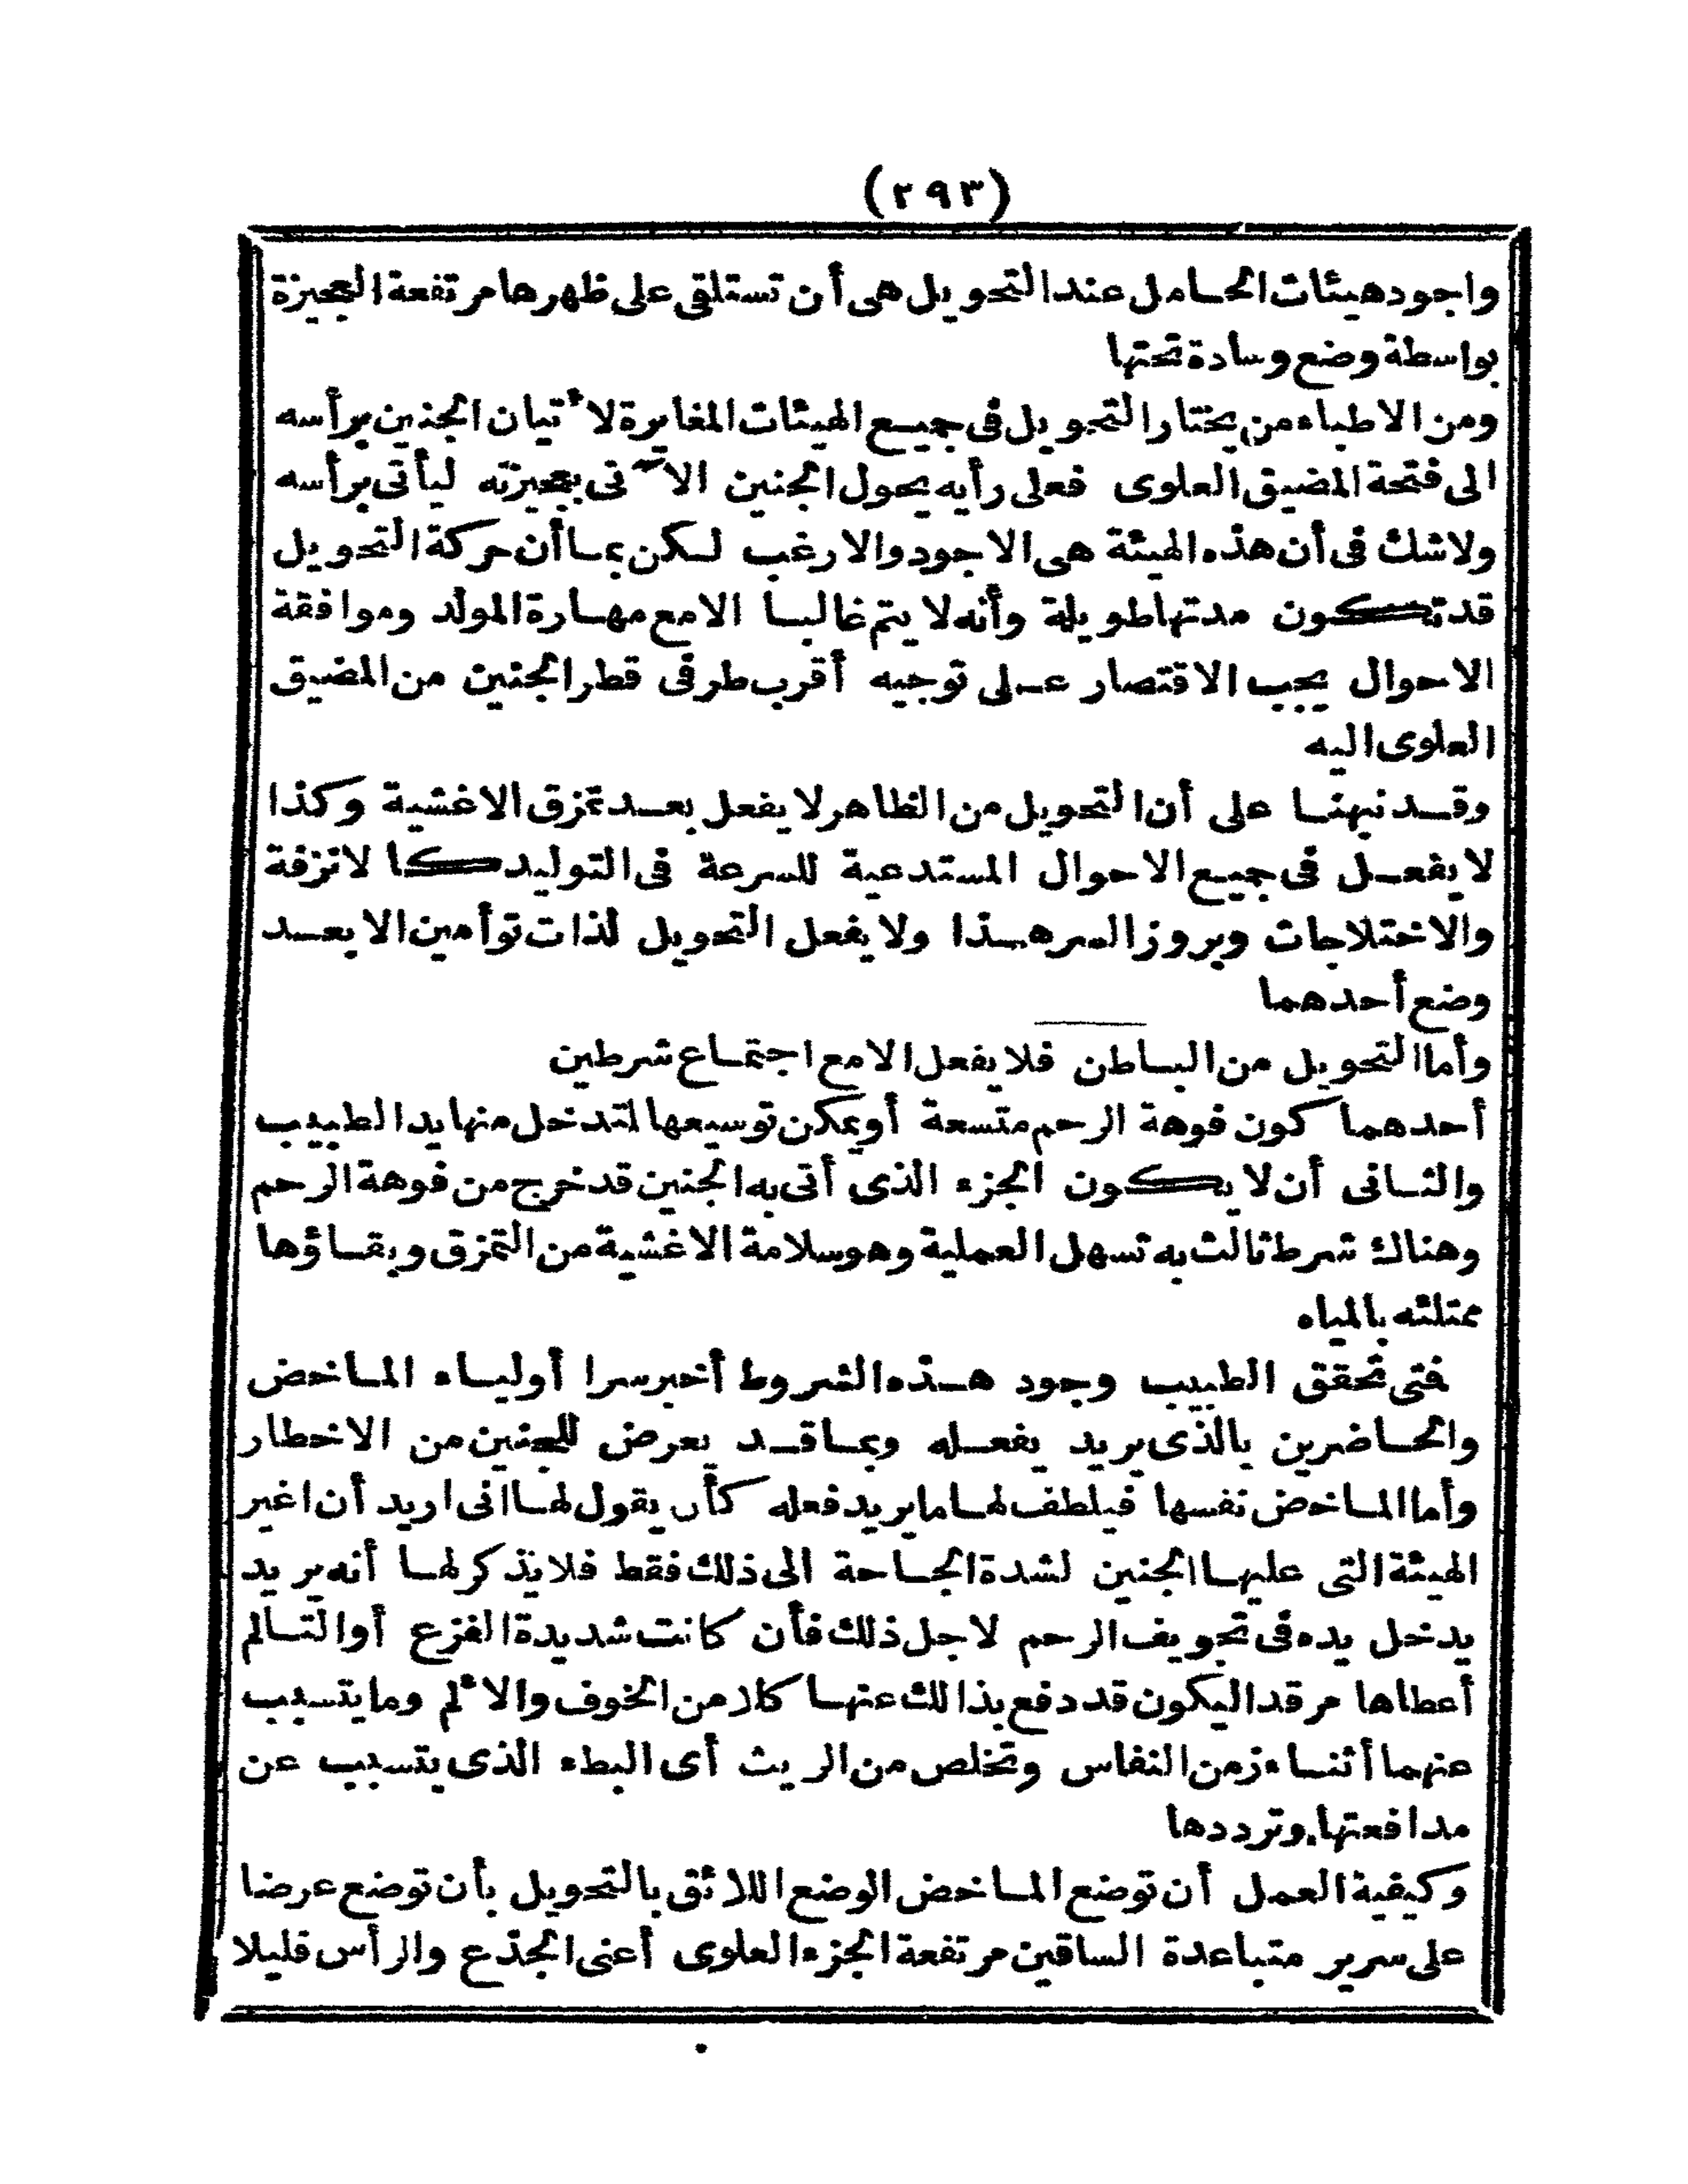 (٢٩٣)
واجود هيئات الحامل عند التحويل هى أن تستلقى على ظهرها مرتفعة العجيزة
بواسطة وضع وسادة تحتها
ومن الاطباء من يختار التحويل فى جميع الهيئات المغايرة لا ٔتيان الجنين برأسه
الى فتحة المضيق العلوى فعلى رأيه يحول الجنين الا ٓتى بعجيزته ليأتى برأسه
ولاشك فى أن هذه الهيئة هى الاجود والارغب لكن بما أن حركة التحويل
قد تكون مدتها طويلة وأنه لا يتم غالبا الا مع مهارة المولد وموافقة
الاحوال يجب الاقتصار على توجيه أقرب طرفى قطر الجنين من المضيق
العلوى اليه
وقد نبهنا على أن التحويل من الظاهر لا يفعل بعد تمزق الاغشية وكذا
لا يفعل فى جميع الاحوال المستدعية للسرعة فى التوليد كالانزفة
والاختلاجات وبروز السر هذا ولا يفعل التحويل لذات توأمين الا بعد
وضع أحدهما
وأما التحويل من الباطن فلا يفعل الا مع اجتماع شرطين
أحدهما كون فوهة الرحم متسعة أو يمكن توسيعها لتدخل منها يد الطبيب
والثانى أن لا يكون الجزء الذى أتى به الجنين قد خرج من فوهة الرحم
وهناك شرط ثالث به تسهل العملية وهو سلامة الاغشية من التمزق وبقاؤها
ممتلئه بالمياه
فتى تحقق الطبيب وجود هذه الشروط أخبر سرا أولياء الماخض
والحاضرين بالذى يريد يفعله وبما قد يعرض للجنين من الاخطار
وأما الماخض نفسها فيلطف لها ما يريد فعله كأن يقول لها انى اريد أن اغير
الهيئة التى عليها الجنين لشدة الحاجة الى ذلك فقط فلا يذكر لها أنه يريد
يدخل يده فى تجويف الرحم لاجل ذلك فأن كانت شديدة الفزع أو التالم
أعطاها مرقدا ليكون قد دفع بذالك عنها كلا من الخوف والا ٔلم وما يتسبب
عنهما أثناء زمن النفاس وتخلص من الريث أى البطء الذى يتسبب عن
مدافعتها وترددها
وكيفية العمل أن توضع الماخض الوضع اللائق بالتحويل بأن توضع عرضا
على سرير متباعدة الساقين مرتفعة الجزء العلوى أعنى الجذع والرأس قليلا